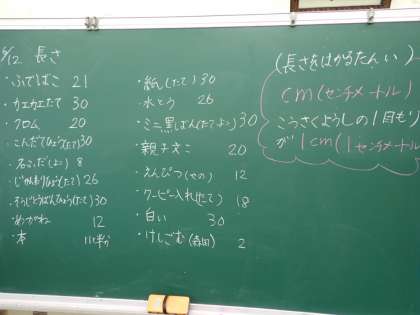 5/12 長さ
・ふでばこ 21
・カエカエたて 30
・クロム 20
・こんだてひょう(たて)30
・名ふだ(よこ) 8
・じかんわりひょう(たて)26
・そうじとうばんひょう(たて)30
・めがね 12
・本 11半分
・紙(たて) 30
・水とう 26
・ミニ黒ばん(たてよこ) 30
・親子文こ 20
・えんぴつ(その) 12
・クーピー入れ(たて) 18
・白い 30
・けしごむ(森田) 2
(長さをはかるたんい)
cm(センチメートル)
こうさくようしの1目もり
が1cm(1センチメートル)